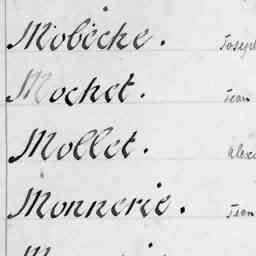 Mobèche. Joseph
Mochet. Jean
Mollet. Alex
Monnerie. Jean